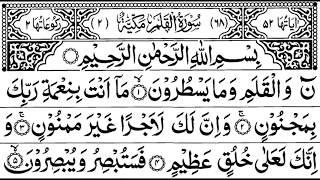 اٰیَاتُهَا ٥٢ (٦٨) سُوْرَةُ الْقَلَمِ مَكِّیَّةٌ (٢) رُكُوْعَاتُهَا ٢
بِسْمِ اللّٰهِ الرَّحْمٰنِ الرَّحِیْمِ
نٓ وَالْقَلَمِ وَمَا یَسْطُرُوْنَ ۙ﴿١﴾ مَاۤ اَنْتَ بِنِعْمَةِ رَبِّكَ
بِمَجْنُوْنٍ ۚ﴿٢﴾ وَاِنَّ لَكَ لَاَجْرًا غَیْرَ مَمْنُوْنٍ ۚ﴿٣﴾ وَ
اِنَّكَ لَعَلٰی خُلُقٍ عَظِیْمٍ ﴿٤﴾ فَسَتُبْصِرُ وَیُبْصِرُوْنَ ۙ﴿٥﴾